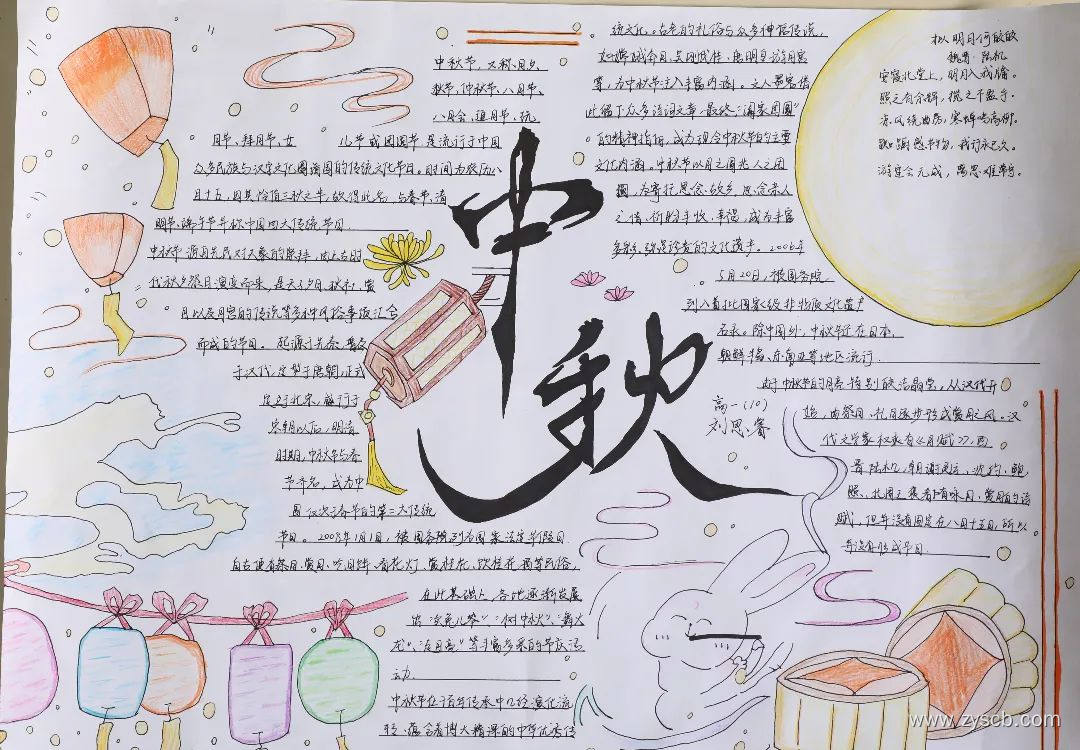 中秋
高一(10)
刘思睿
中秋节,又称月夕、
秋节、仲秋节、八月节、
八月会、追月节、玩
月节、拜月节、女儿节或团圆节,是流行于中国
众多民族与汉字文化圈诸国的传统文化节日。时间为农历八
月十五,因其恰值三秋之半,故得此名,与春节、清
明节、端午节并称中国四大传统节日。
中秋节源自先民对天象的崇拜,由上古时
代秋夕祭月演变而来,是
月以及月宫的传说等多种风俗事
而成的节日。起源于先秦,普及
于汉代,定型于唐朝,正式
定于北宋,盛行于
宋朝以后,明清
时期,中秋节与春
节齐名,成为中
国仅次于春节的第二大传统
节日。2008年1月1日,被国务院列为国家法定节假日
自古便有祭月、赏月、吃月饼、看花灯、赏桂花、饮桂花酒等民俗,
在此基础上,各地逐渐发展
出"兔儿爷"、"树中秋"、舞火
龙"、"走月亮"等丰富多采的节庆活
动。
中秋节在百年传承中几经演化流
转,蕴含着博大精深的中华优秀传
统文化。古老的礼俗与众多神话传说,
如嫦娥奔月、吴刚伐桂、唐明皇游月宫
等,为中秋节注入丰富内涵。文人墨客借
此留下众多诗词文章,最终"阖家团圆"
的精神指向,成为现今中秋节的主要
文化内涵。中秋节以月之圆兆人之团
圆,为寄托思念故乡,思念亲人
之情,祈盼丰收、幸福,成为丰富
多彩、弥足珍贵的文化遗产。2006年
5月20日,被国务院
列入首批国家级非物质文化遗产
名录。除中国外,中秋节还在日本、
朝鲜半岛、东南亚等地区流行
由于中秋节的月亮特别皎洁晶莹,从汉代开
始,由祭月、礼月逐步形成赏月之风。汉
代文学家枚乘有《月赋》,西
晋陆机,
照,北周王褒都有咏月、赏月的诗
赋,但并没有固定在八月十五日,所以
没有形成节日
拟明月何皎皎
晋 陆机
安寝北堂上,明月入我牖。
照之有余辉,揽之不盈手。
凉风绕曲房,寒蝉鸣高柳。
踟蹰感节物,我行永已久。
游宦会无成,离思难常守。
www.zyscb.com